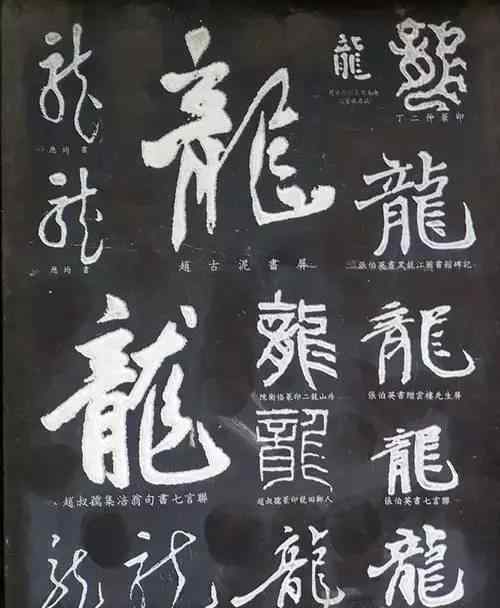 龍
龍
龍
龍
丁二仲篆印
應均書
龍
龍
應均書
趙古泥書屏
張伯英書黑龍江圖書館碑記
龍
龍
龍
陳衡恪篆印二龍山外
張伯英書贈雲樓先生屏
龍
龍
趙叔孺集活翁句書七言聯
趙叔孺篆印龍田鄉人
張伯英書七言聯
龍
龍
龍
龍